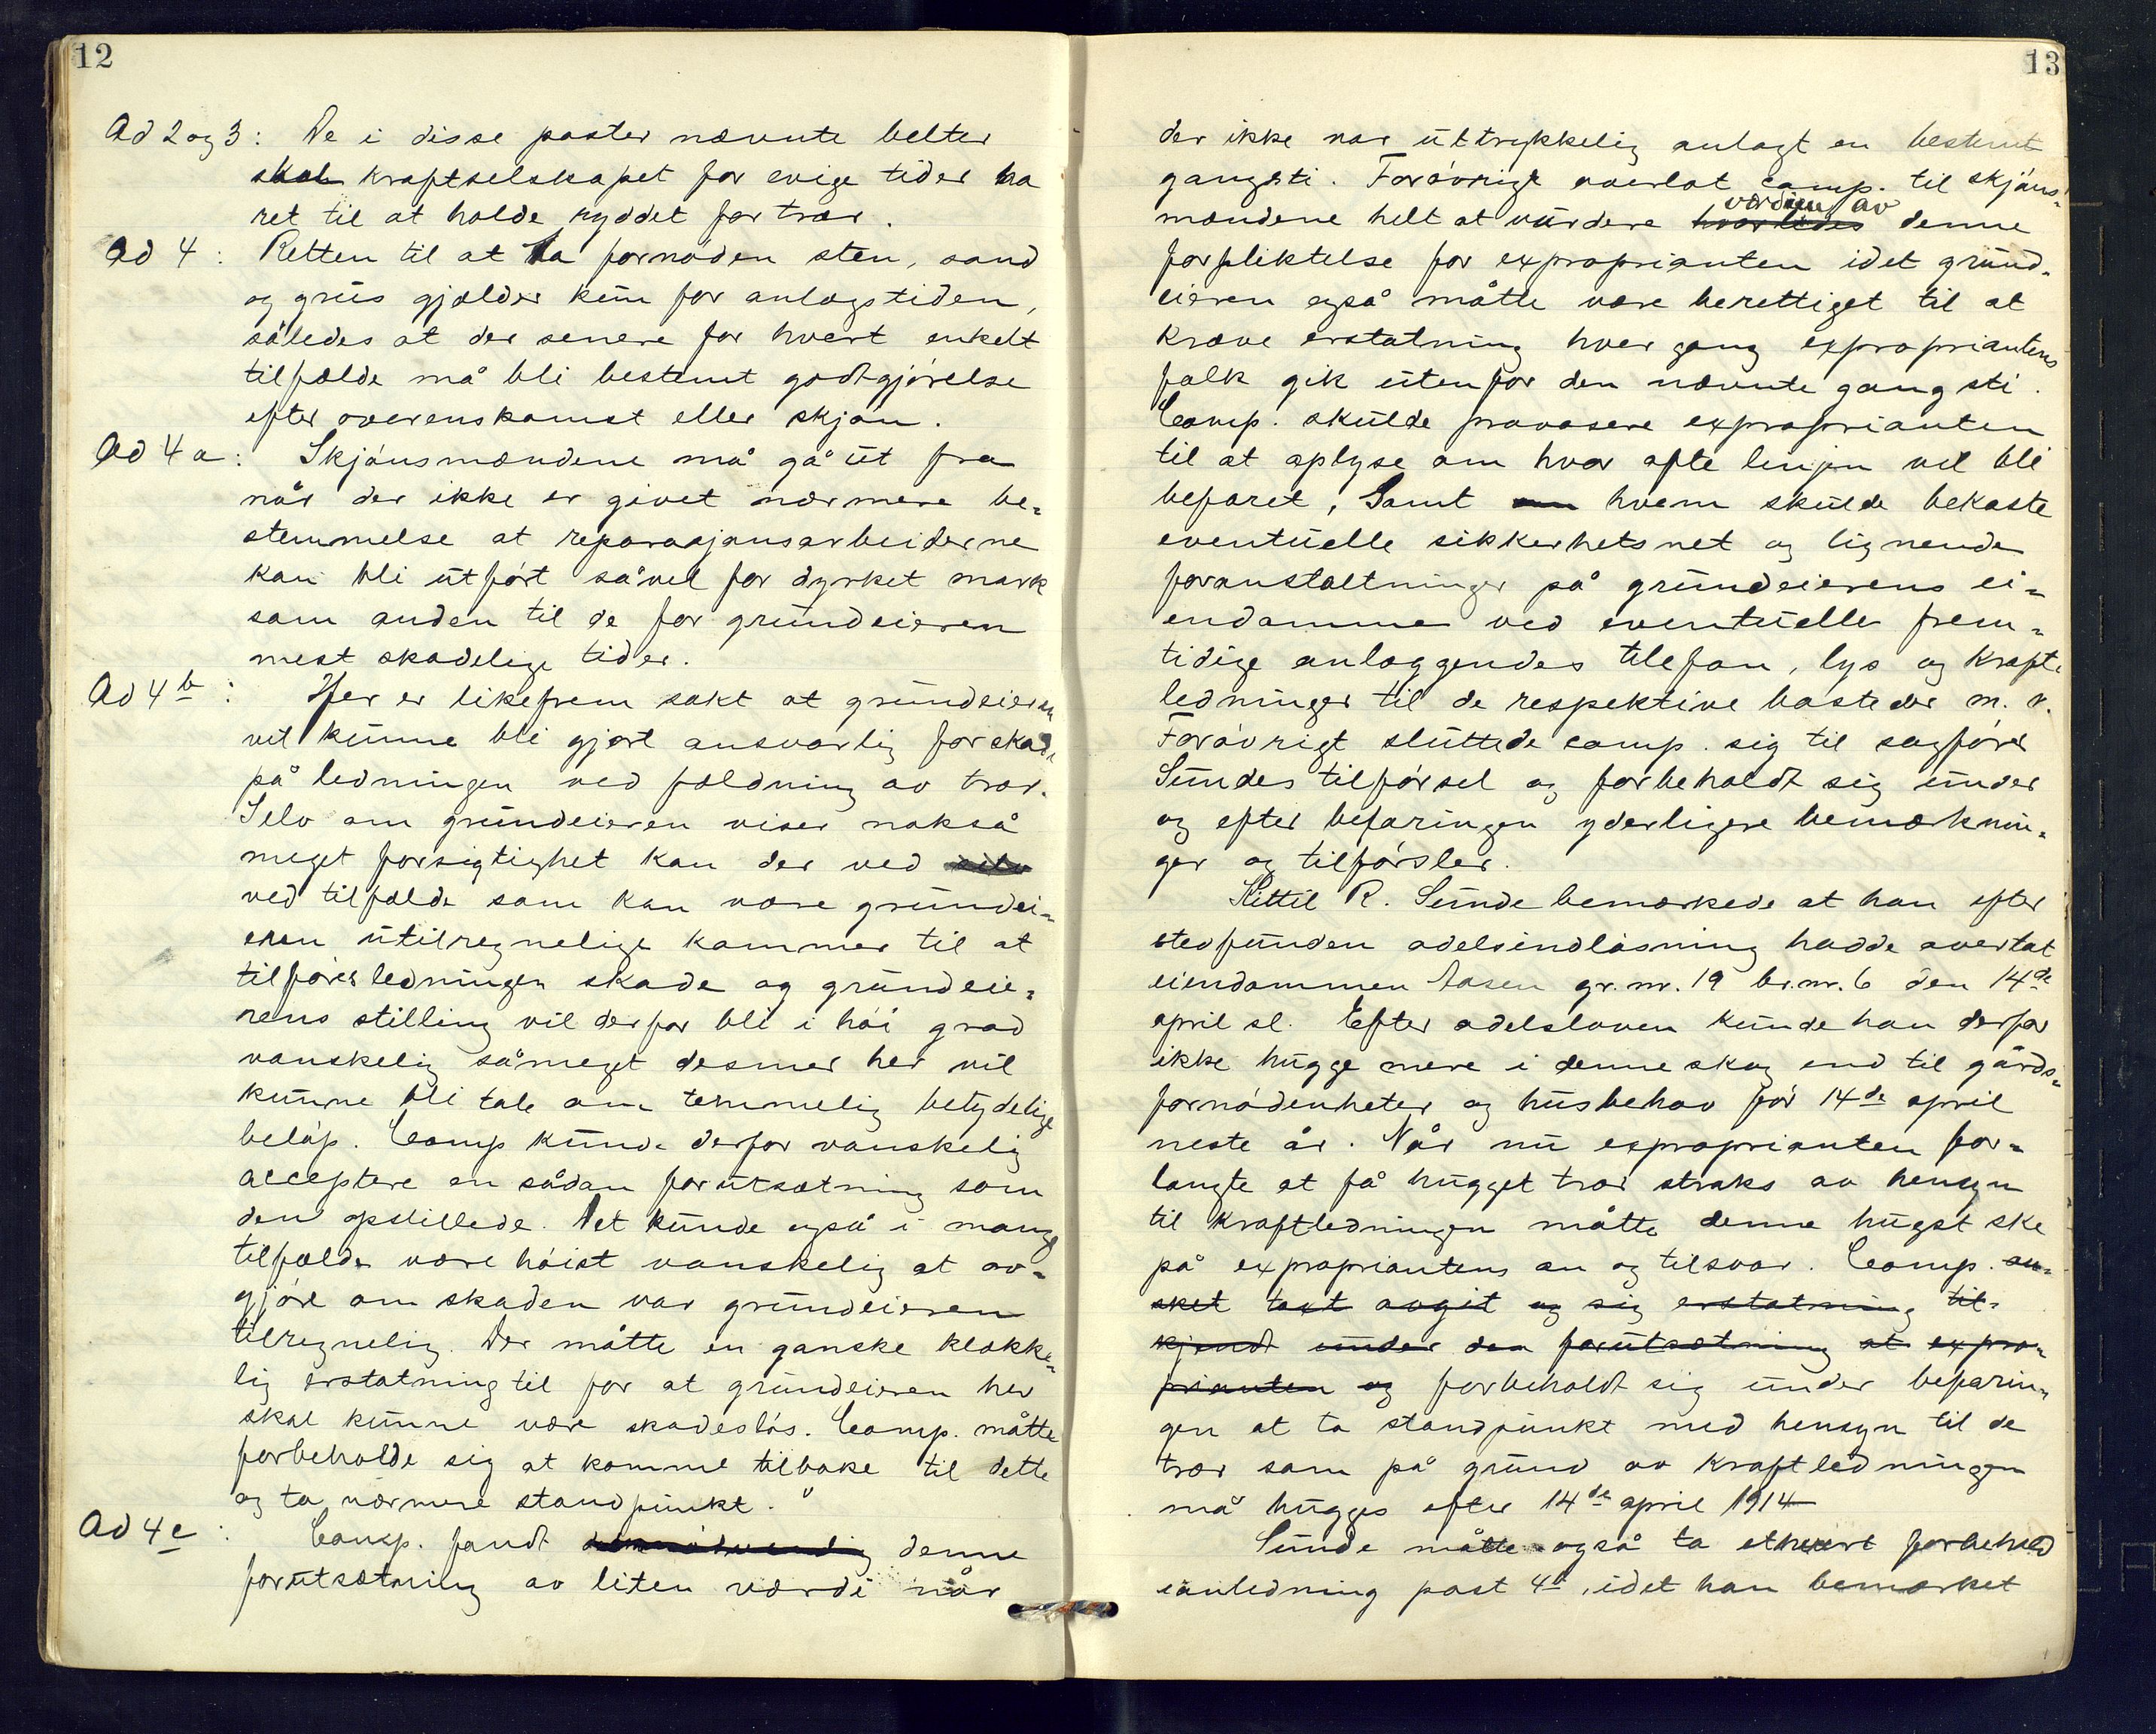 12
Ad 2 og 3: De i disse poster nævnte belter
skal kraftselskapet for evige tider ha
ret til at holde ryddet for trær.
Ad 4: Retten til at ta fornøden sten, sand
og grus gjælder kun for anlægstiden,
således at der senere for hvert enkelt
tilfælde må bli bestemt godtgjørelse
efter overenskomst eller skjøn.
Ad 4 a: Skjønsmændene må gå ut fra
når der ikke er givet nærmere be-
stemmelse at reparasjonsarbeiderne
kan bli utført såvel for dyrket mark
som anden til de for grundeieren
mest skadelige tider.
Ad 4 b: Her er likefrem sakt at grundeieren
vil kunne bli gjort ansvarlig for skade
på ledningen ved fældning av trær.
Selv om grundeieren viser nokså
meget forsigtighet kan der ved
ved tilfælde som kan være grundei-
eren utilregnelige kommer til at
tilføres ledningen skade og grundeie-
rens stilling vil derfor bli i høi grad
vanskelig såmeget desmer her vil
kunne bli tale om temmelig betydelige
beløp. Comp kunde derfor vanskelig
acceptere en sådan forutsætning som
den opstillede. Det kunde også i mange
tilfælde være høist vanskelig at av-
gjøre om skaden var grundeieren
tilregnelig. Der måtte en ganske klække-
lig erstatning til for at grundeieren her
skal kunne være skadesløs. Comp. måtte
forbeholde sig at komme tilbake til dette
og ta nærmere standpunkt."
Ad 4 c: Comp. fandt denne
forutsætning av liten værdi når
13
der ikke var uttrykkelig anlagt en bestemt
gangsti. Forøvrigt overlot comp. til skjøns-
værdien av
mændene helt at vurdere hvorledes denne
forpliktelse for exproprianten idet grund-
eieren også måtte være berettiget til at
kræve erstatning hver gang expropriantens
folk gik utenfor den nævnte gangsti.
Comp. skulde provosere exproprianten
til at oplyse om hvor ofte linjen vil bli
befaret, Samt om hvem skulde bekoste
eventuelle sikkerhetsnet og lignende
foranstaltninger på grundeierens ei-
endomme ved eventuelle frem-
tidige anlæggendes telefon, lys og kraft-
ledninger til de respektive bosteder m. v.
Forøvrigt sluttede comp. sig til sagfører
Sundes tilførsel og forbeholdt sig under
og efter befaringen yderligere bemærknin-
ger og tilførsler.
Kittil R. Sunde bemærkede at han efter
stedfunden odelsindløsning hadde overtat
eiendommen Aasen gr.nr. 19 br.nr. 6 den 14de
april sl. Efter odelsloven kunde han derfor
ikke hugge mere i denne skog end til gårds-
fornødenheter og husbehov før 14de april
neste år. Når nu exproprianten for-
langte at få hugget trær straks av hensyn
til kraftledningen måtte denne hugst ske
på expropriantens an og tilsvar. Comp. øn-
sket takt avgit og sig erstatning til-
kjendt under den forutsætning at expro-
prianten og forbeholdt sig under befarin-
gen at ta standpunkt med hensyn til de
trær som på grund av kraftledningen
må hugges efter 14de april 1914
Sunde måtte også ta ethvert forbehold
ianledning post 4b, idet han bemærket